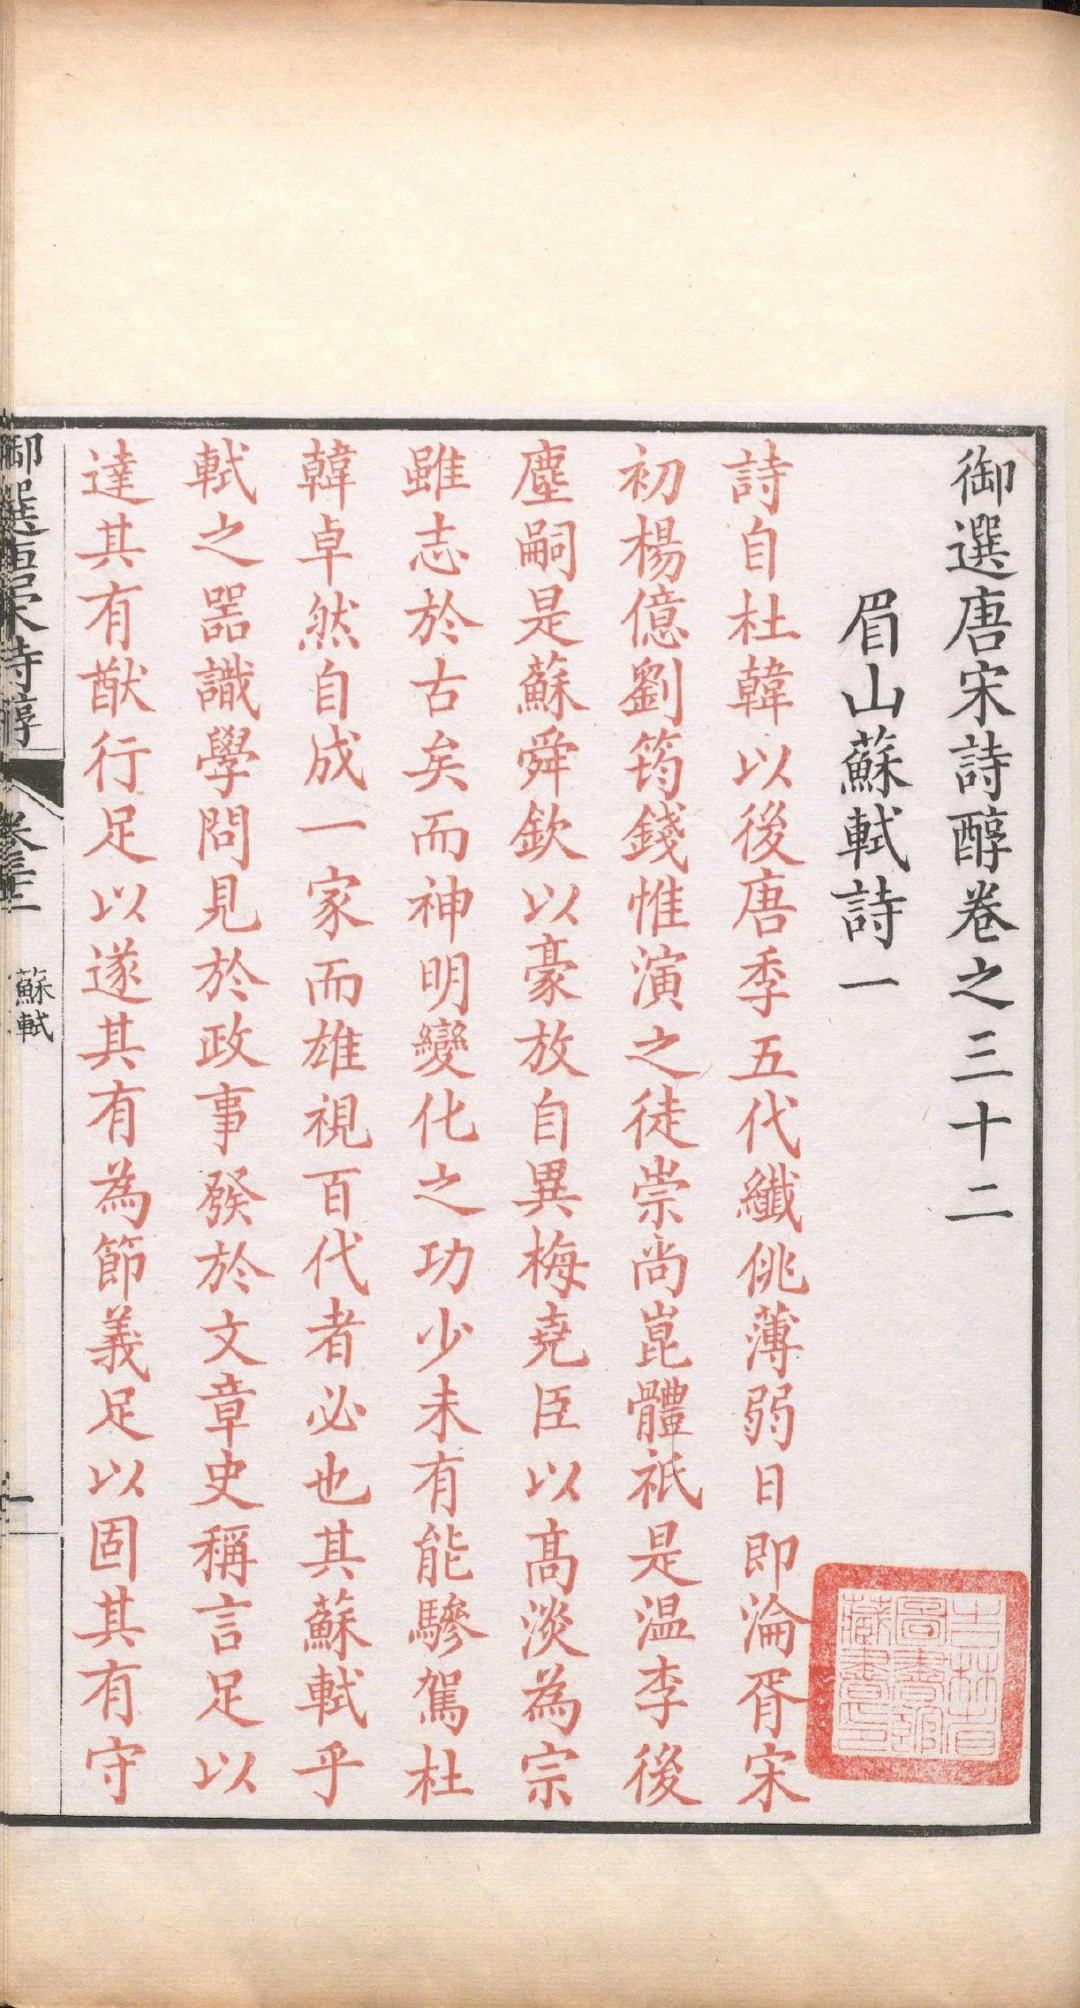 御選唐宋詩醇卷之三十二
眉山蘇軾詩一
詩自杜韓以後唐季五代纖佻薄弱日即淪胥宋
初楊億劉筠錢惟演之徒崇尚崑體祇是温李後
塵嗣是蘇舜欽以豪放自異梅堯臣以高淡為宗
雖志於古矣而神明變化之功少未有能驂駕杜
韓卓然自成一家而雄視百代者必也其蘇軾乎
軾之器識學問見於政事發於文章史稱言足以
達其有猷行足以遂其有為節義足以固其有守
御選唐宋詩醇
卷三十二
蘇軾
一
吉林省
圖書館
藏書印